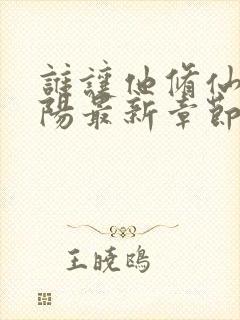 誰讓他脩仙
陽最新章節
王曉鴎